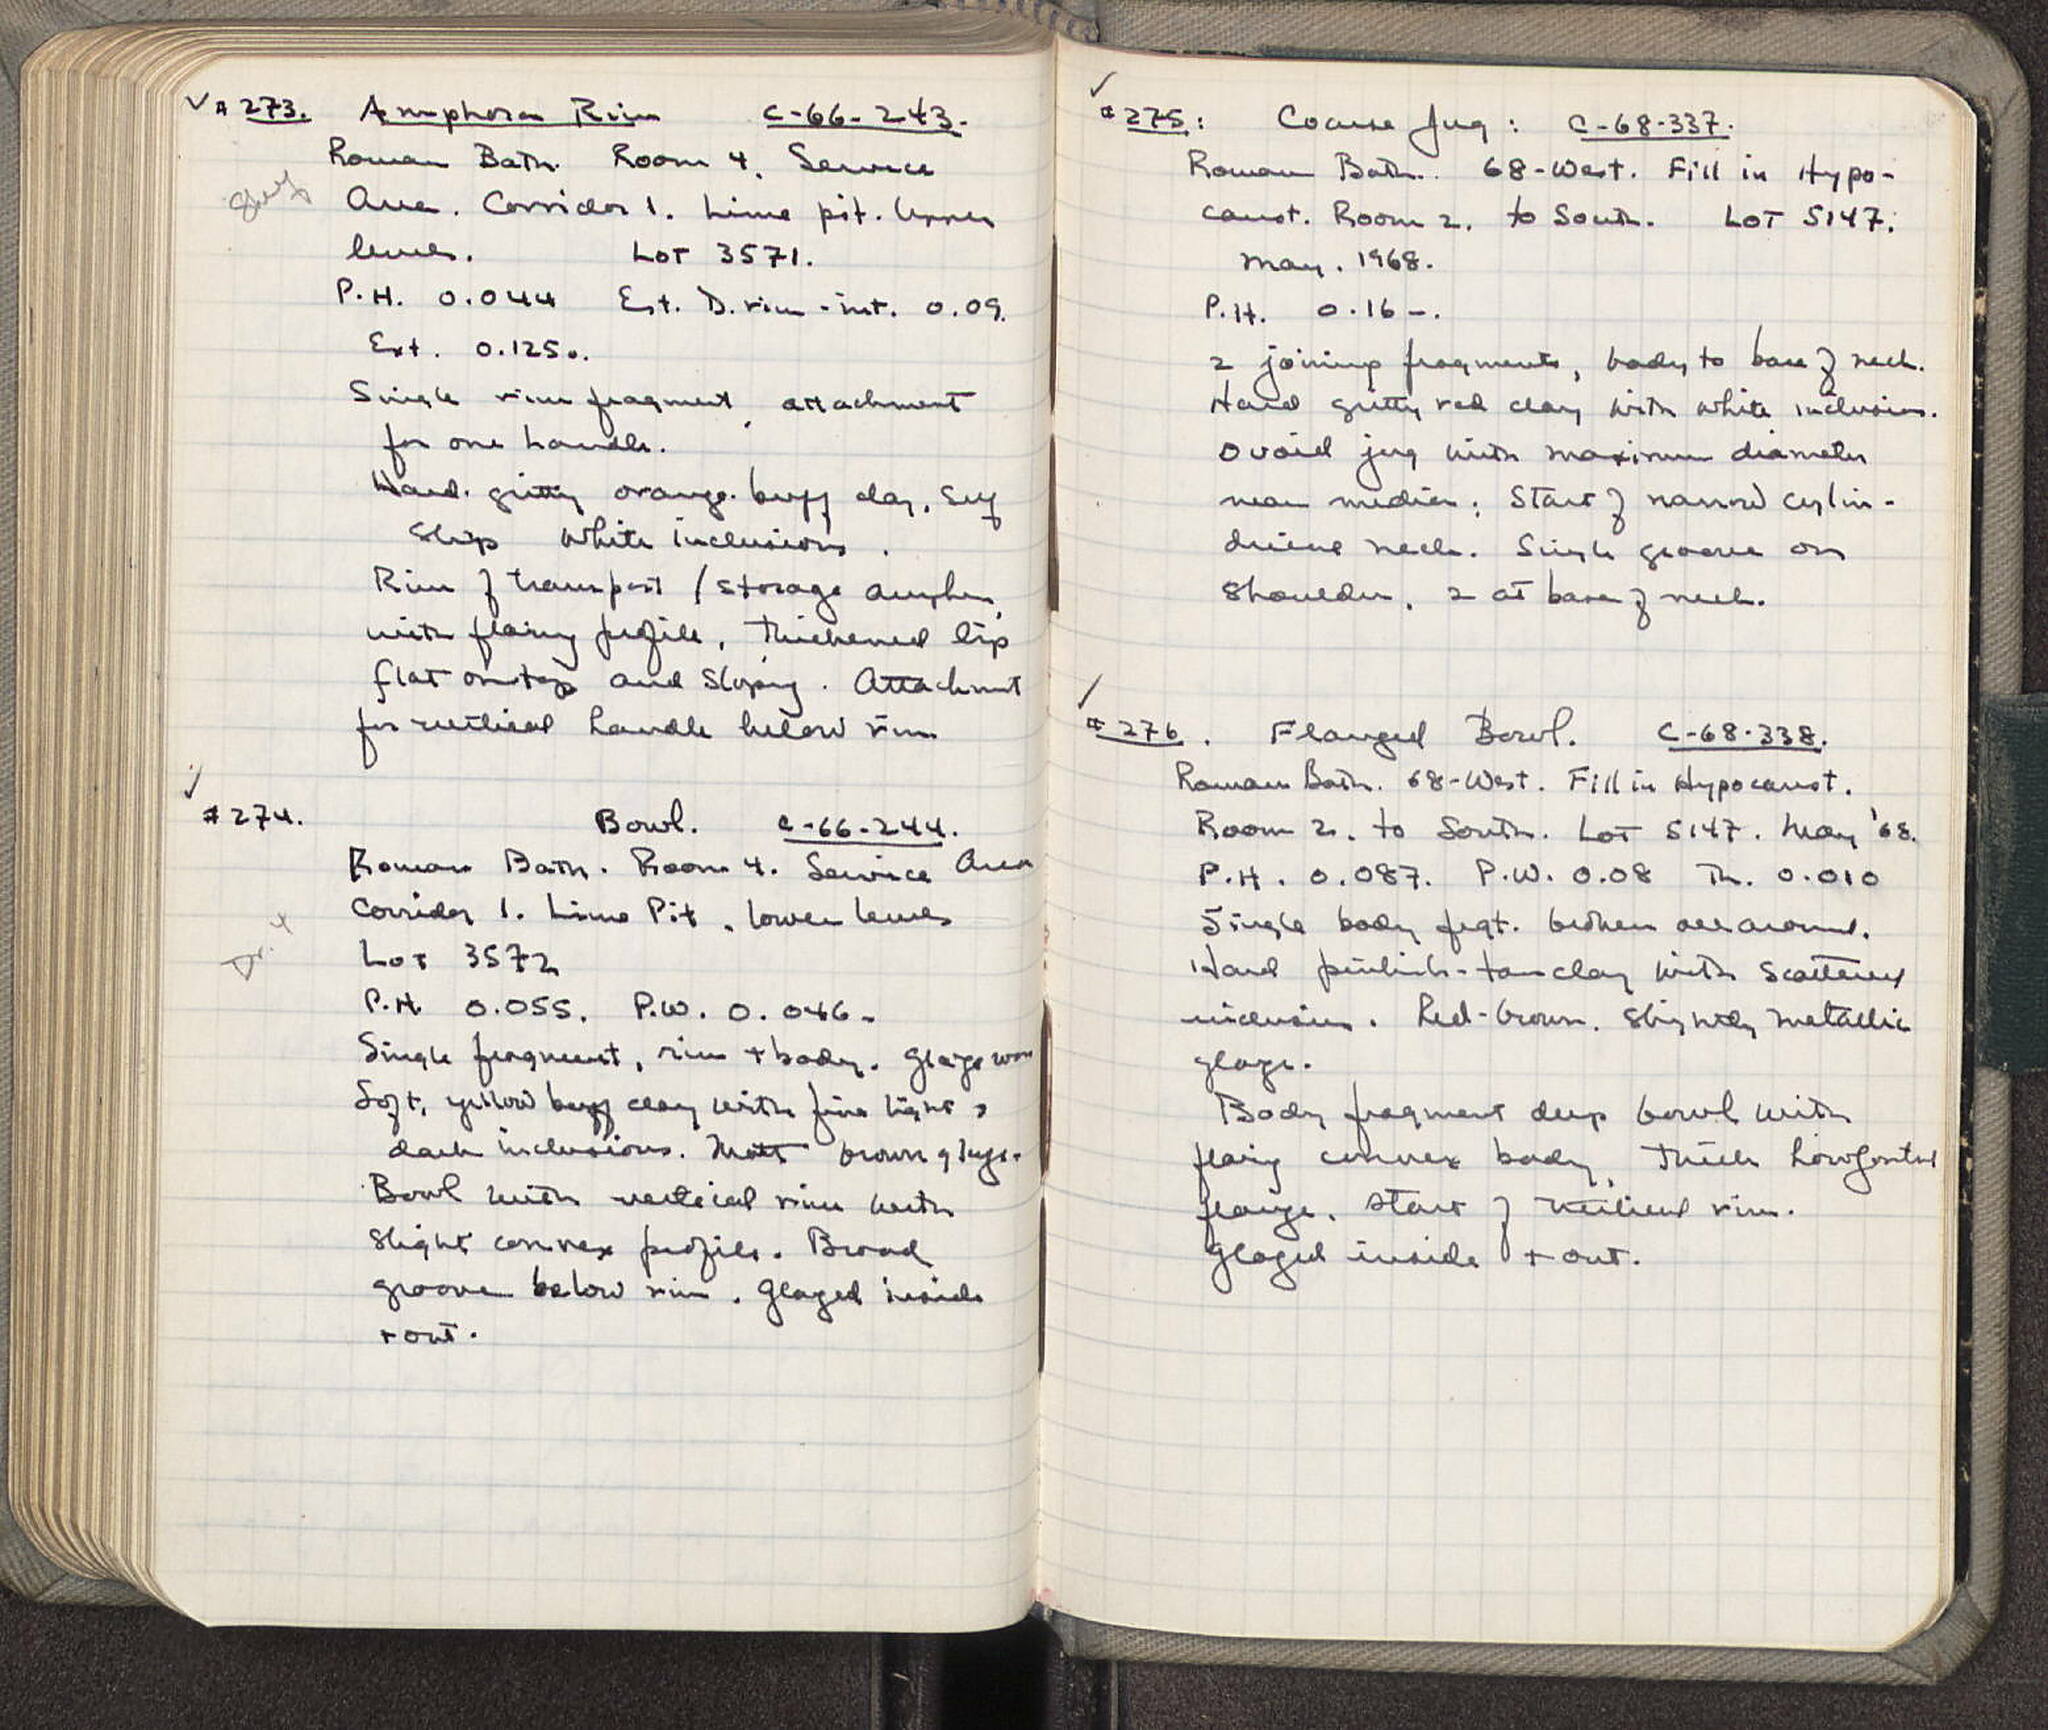 ✓ # 273. Amphora Rim C-66-243.
Roman Bath. Room 4. Service
Area. Corridor 1. Lime pit. Upper
levels. Lot 3571.
P.H. 0.044 Est. D. rim - int. 0.09.
Ext. 0.125.
Single rim fragment, attachment
for one handle.
Hard. gritty orange-buff clay. Self
slip white inclusions.
Rim of transport / storage amphora,
with flaring profile. Thickened lip
flat on top and sloping. Attachment
for vertical handle below rim
✓
# 274. Bowl. C-66-244.
Roman Bath. Room 4. Service Area
Corridor 1. Lime Pit, lower levels
Lot 3572
P.H. 0.055. P.W. 0.046-
Single fragment, rim + body. Glaze worn
Soft, yellow buff clay with fine light &
dark inclusions. Matt brown glaze.
Bowl with vertical rim with
slight convex profile. Broad
groove below rim. Glazed inside
+ out.
✓
# 275: Coarse Jug: C-68-337.
Roman Bath. 68-West. Fill in Hypo-
caust. Room 2. to South. Lot 5147.
May. 1968.
P.H. 0.16-.
2 joining fragments, body to base of neck.
Hard gritty red clay with white inclusions.
Ovoid jug with maximum diameter
near median; Start of narrow cylin-
drical neck. Single groove on
shoulder, 2 at base of neck.
✓
# 276. Flanged Bowl. C-68-338.
Roman Bath. 68-West. Fill in Hypocaust.
Room 2. to South. Lot 5147. May '68.
P.H. 0.087. P.W. 0.08 Th. 0.010
Single body fragt. broken all around.
Hard pinkish-tan clay with scattered
inclusions. Red-brown. Slightly metallic
glaze.
Body fragment deep bowl with
flaring convex body, thick horizontal
flange, start of vertical rim.
Glazed inside + out.